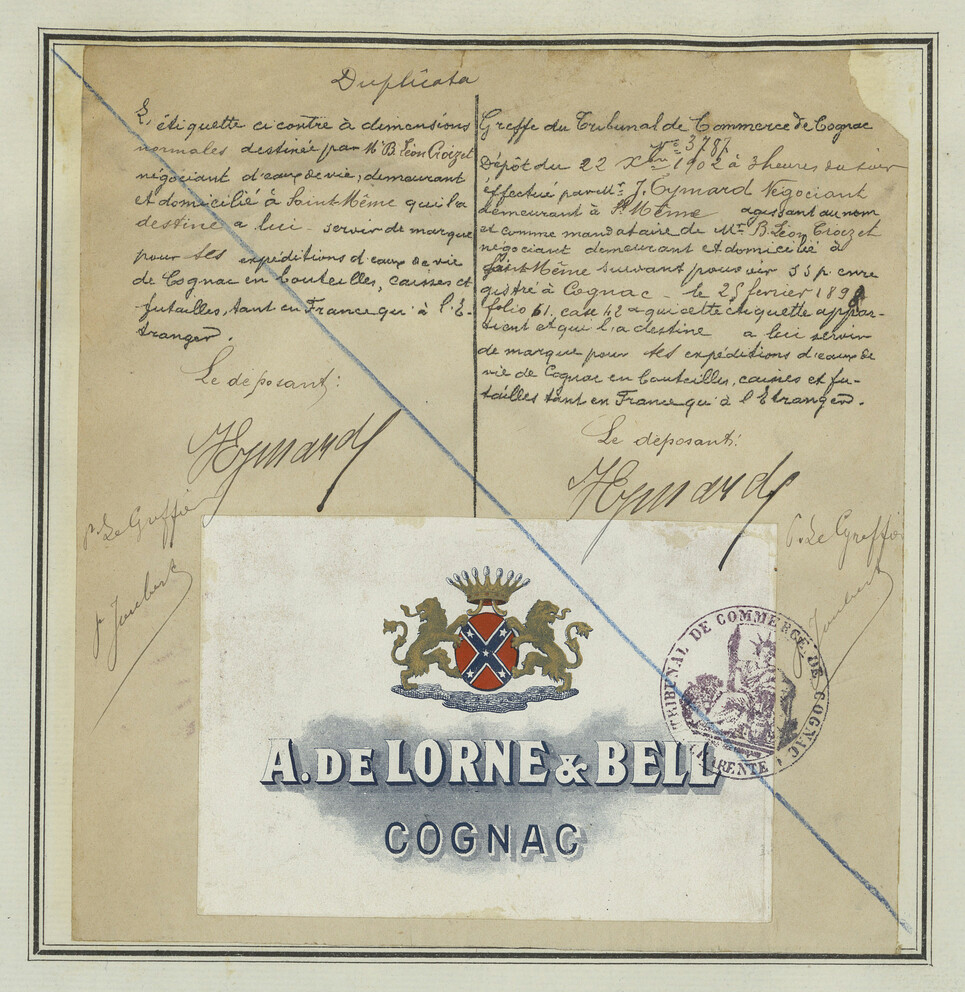 Duplicata
L'étiquette ci contre à dimensions
normales destinée par Mr B. Léon Croizet
négociant d'eaux de vie, demeurant
et domicilié à Saint-Même qu'il a
destine a lui servir de marque
pour ses expéditions d'eaux de vie
de Cognac en bouteilles, caisses et
futailles, tant en France qu'à l'E-
tranger.
Le déposant:
Greffe du Tribunal de Commerce de Cognac
No 3787
Dépôt du 22 Xbre 1902 à 3 heures du soir
éffectué par Mr. J. Eymard Négociant
demeurant à St Même agissant au nom
et comme mandataire de Mr. B. Léon Croizet
négociant demeurant et domicilié à
Saint-Même suivant pouvoir s s p. enre
gistré à Cognac - le 25 fevrier 189
folio 61, case 42 que cette étiquette appar-
tient et qu'il a destine a lui servir
de marque pour ses expéditions d'eaux de
vie de Cognac en bouteilles, caisses et fu-
tailles tant en France qu'à l'Etranger.
Le déposant:
JEymard
JEymard
p. Le Greffier
p. Le Greffier
TRIBUNAL DE COMMERCE DE COGNAC
CHARENTE
A. DE LORNE & BELL
COGNAC